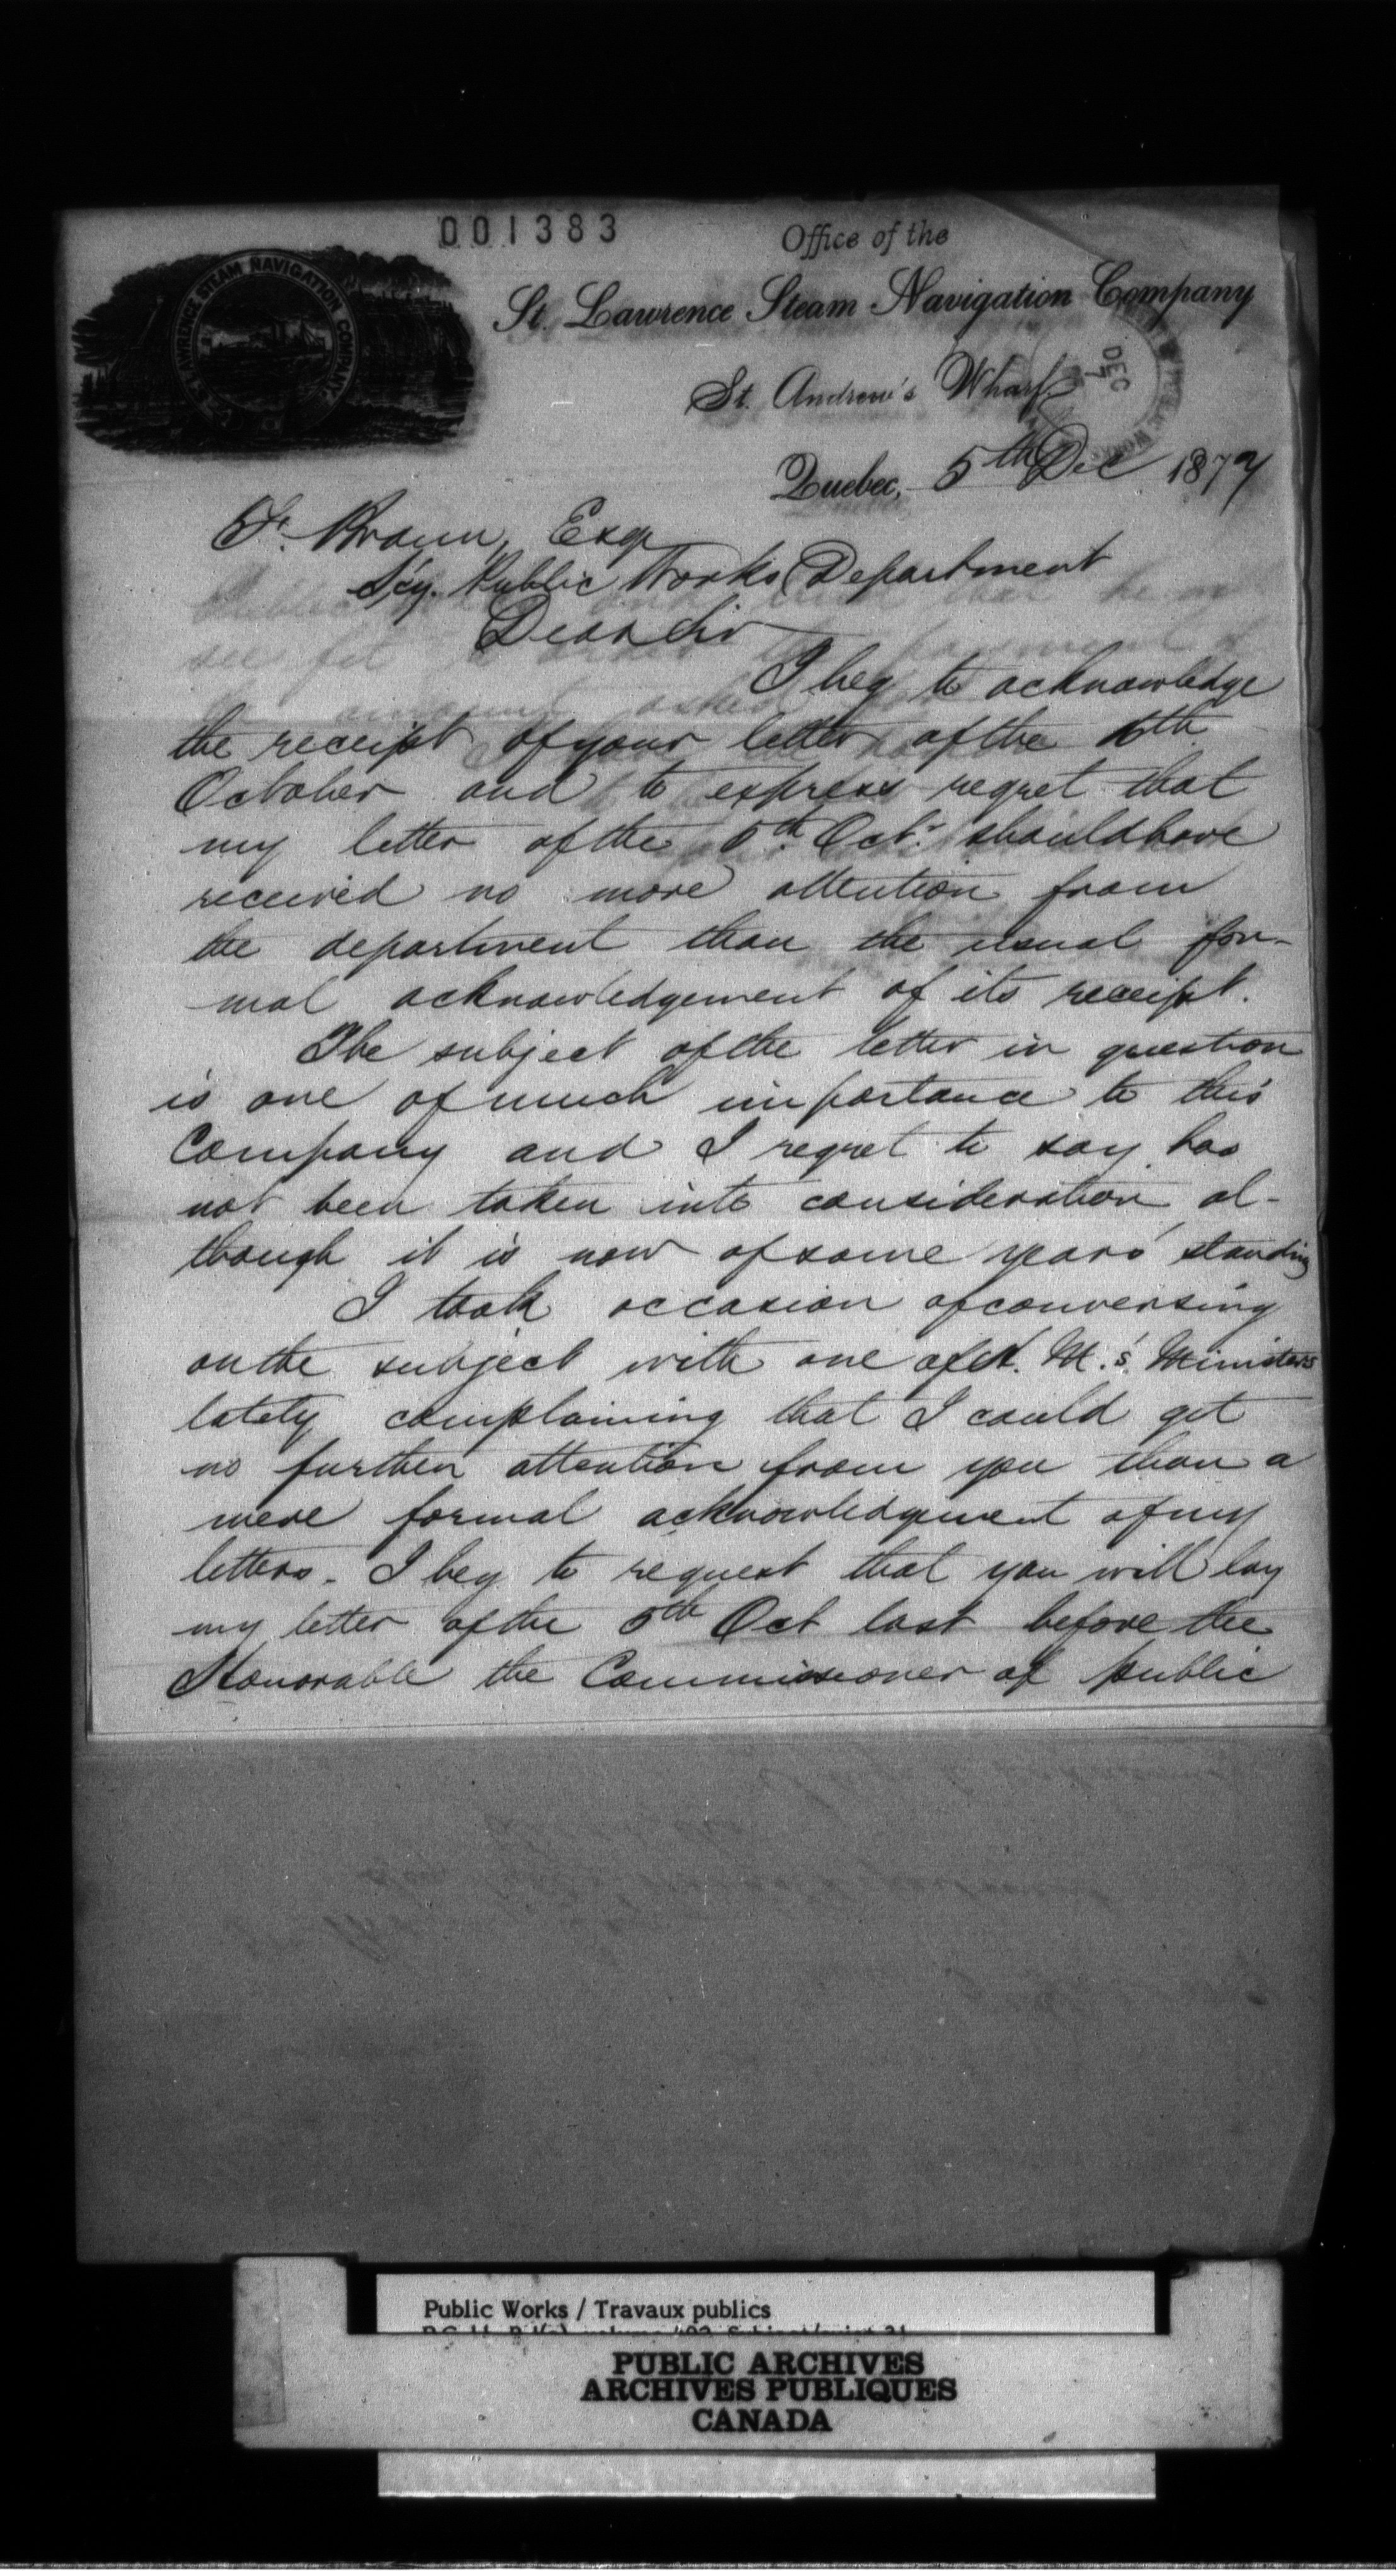 001383
Office of the
St. Lawrence Steam Navigation Company
ST. LAWRENCE STEAM NAVIGATION COMPANY
DEC 7
St. Andrew's Wharf
Quebec, 5th Dec 187
F. Braun, Esqr
Secy. Public Works Department
Dear Sir
I beg to acknowledge
the receipt of your letter of the 6th
October and to express regret that
my letter of the 5th Octr. should have
received no more attention from
the department than the usual for-
mal acknowledgement of its receipt.
The subject of the letter in question
is one of much importance to this
Company and I regret to say has
not been taken into consideration al-
though it is now of some years' standing
I took occasion of conversing
on the subject with one of H. M.'s. Ministers
lately complaining that I could get
no further attention from you than a
mere formal acknowledgement of my
letters. I beg to request that you will lay
my letter of the 5th Oct last before the
Honorable the Commissioner of public
Public Works / Travaux publics
PUBLIC ARCHIVES
ARCHIVES PUBLIQUES
CANADA